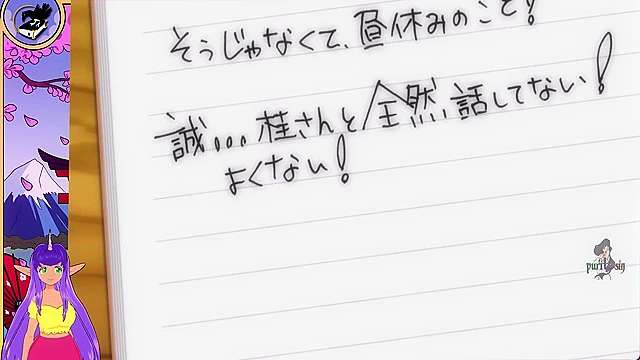 そうじゃなくて、昼休みのこと!
誠... 桂さんと全然話してない!
よくない!
purit sin